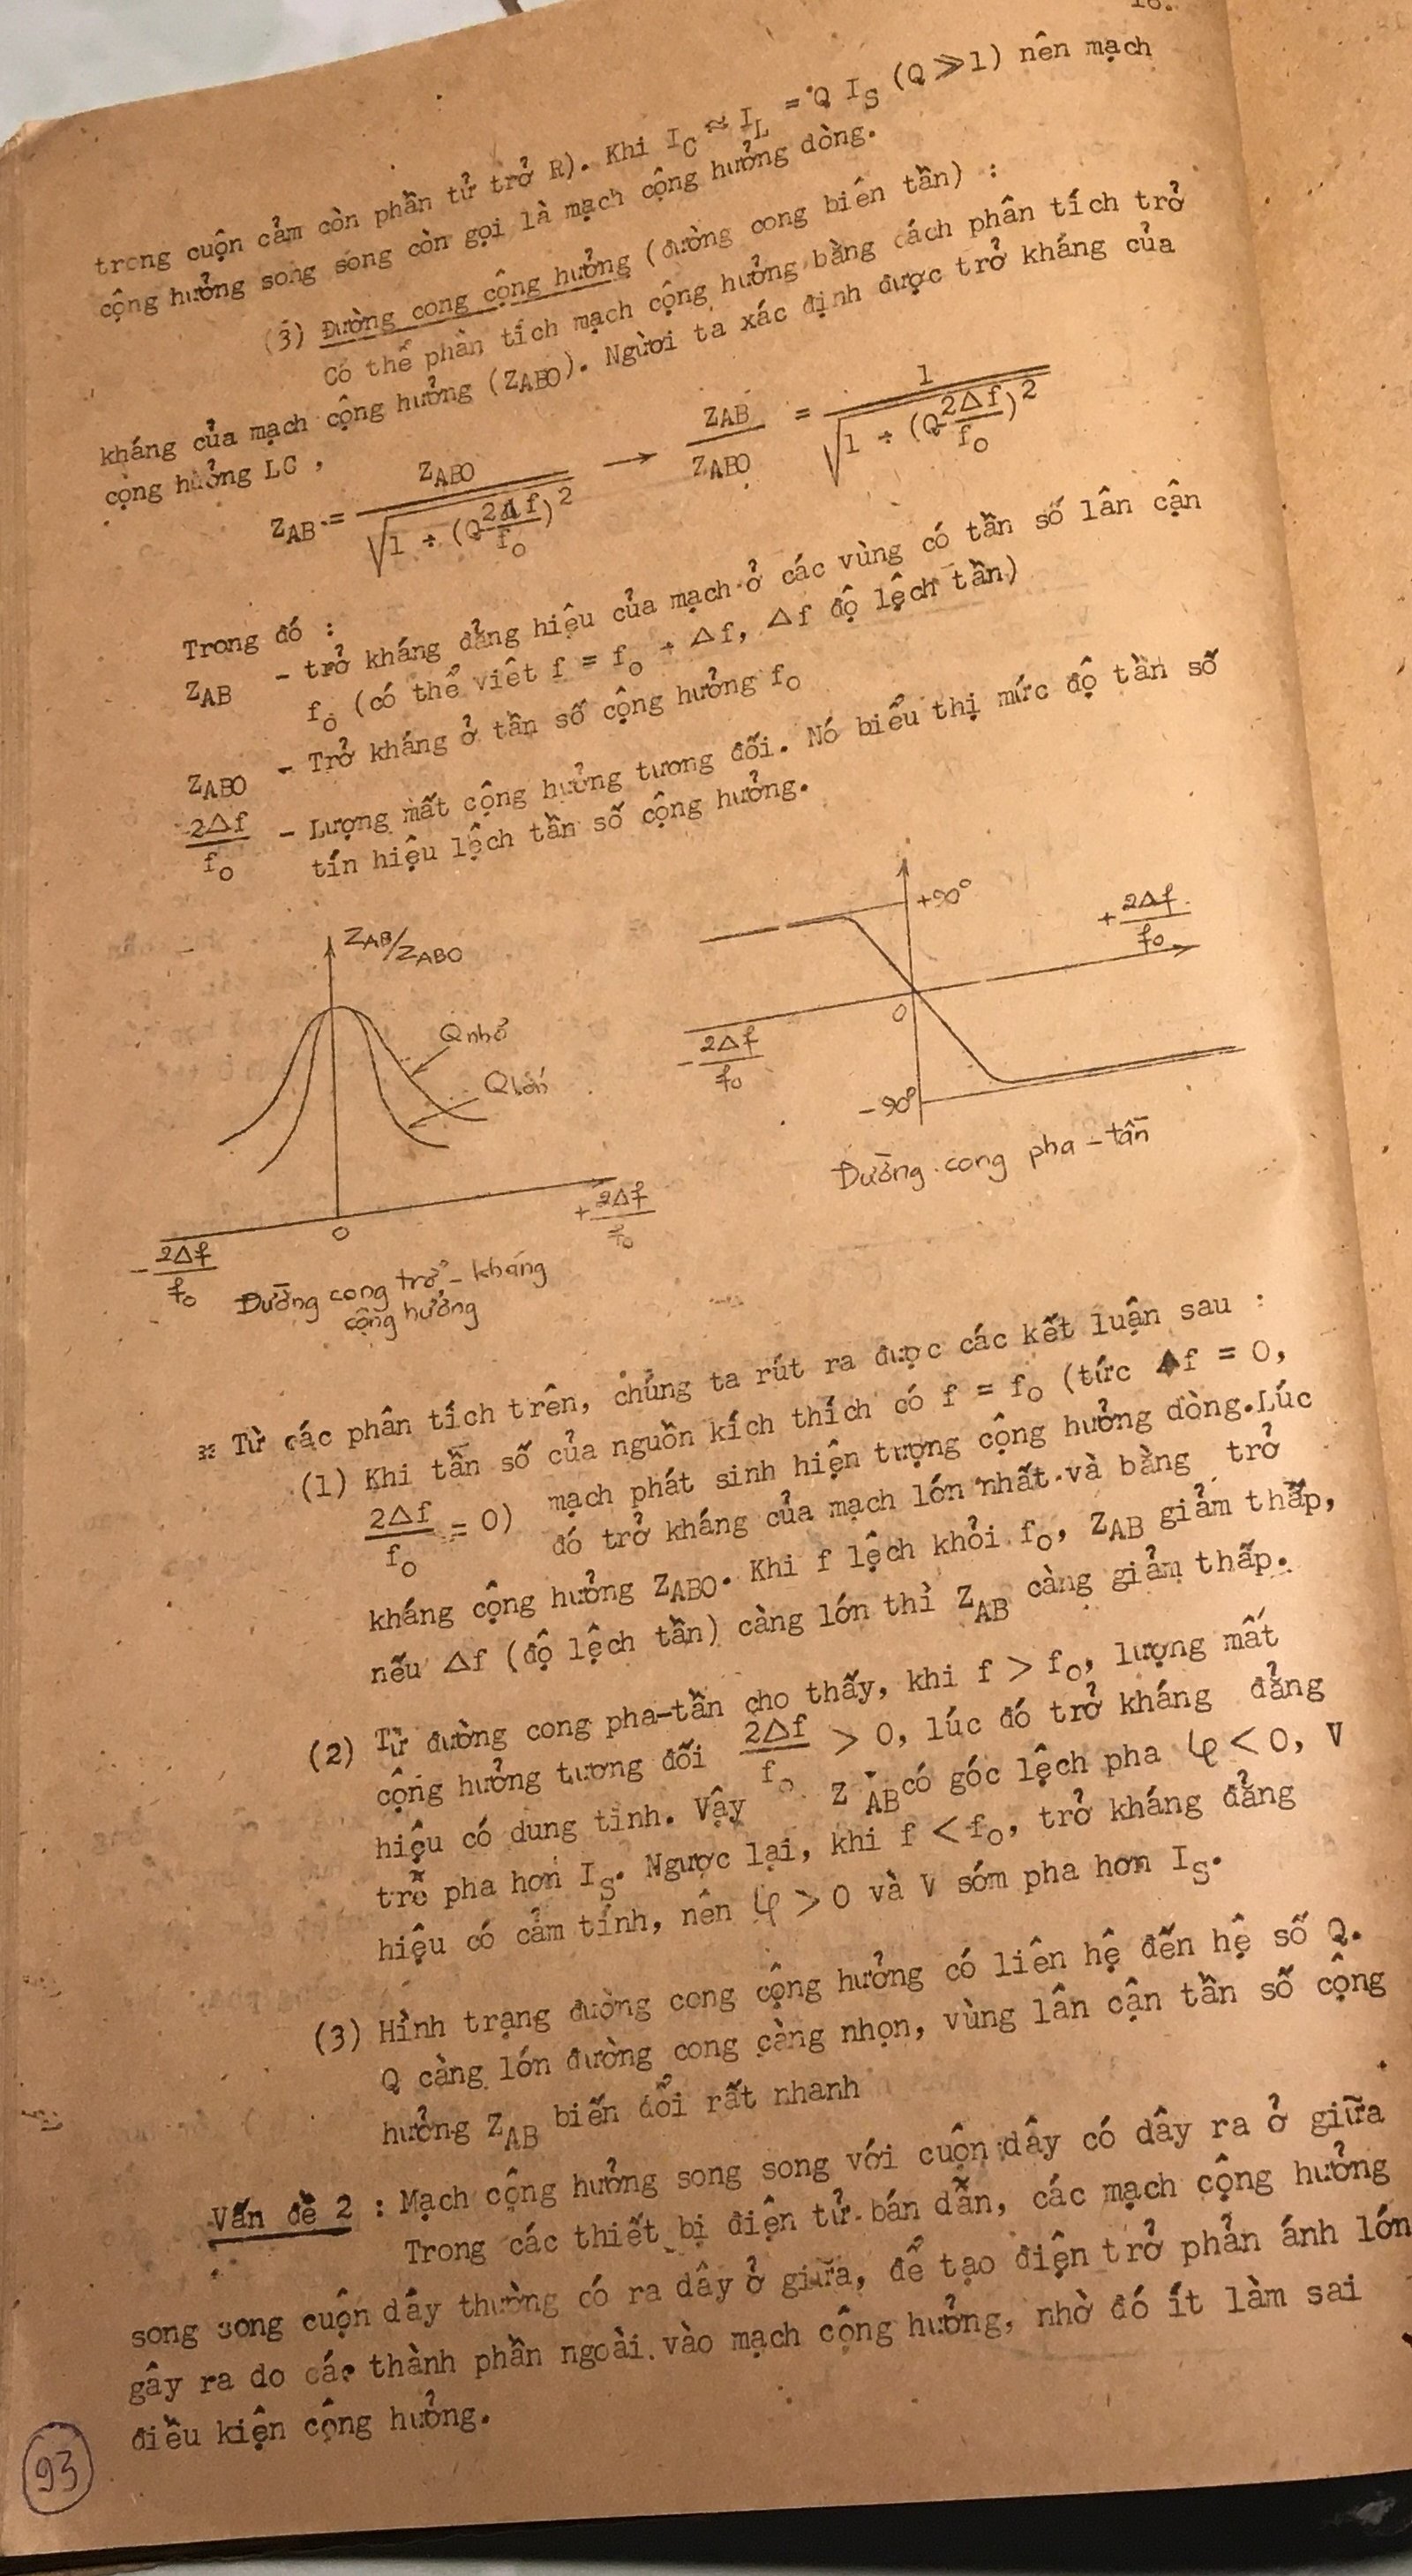 trong cuộn cảm còn phần tử trở R). Khi I_C ≈ I_L = Q I_S (Q ≫ 1) nên mạch
cộng hưởng song song còn gọi là mạch cộng hưởng dòng.
(3) Đường cong cộng hưởng (đường cong biên tần) :
Có thể phân tích mạch cộng hưởng bằng cách phân tích trở
kháng của mạch cộng hưởng (Z_ABO). Người ta xác định được trở kháng của
cộng hưởng LC ,
Z_AB = Z_ABO / √(1 + (Q 2Δf/f_o)^2) → Z_AB / Z_ABO = 1 / √(1 + (Q 2Δf/f_o)^2)
Trong đó :
Z_AB - trở kháng đẳng hiệu của mạch ở các vùng có tần số lân cận
f_o (có thể viết f = f_o + Δf, Δf độ lệch tần)
Z_ABO - Trở kháng ở tần số cộng hưởng f_o
2Δf/f_o - Lượng mất cộng hưởng tương đối. Nó biểu thị mức độ tần số
tín hiệu lệch tần số cộng hưởng.
Z_AB/Z_ABO
Q nhỏ
Q lớn
- 2Δf/f_o
0
+ 2Δf/f_o
Đường cong trở - kháng
cộng hưởng
+90°
+ 2Δf/f_o
0
- 2Δf/f_o
-90°
Đường cong pha - tần
* Từ các phân tích trên, chúng ta rút ra được các kết luận sau :
(1) Khi tần số của nguồn kích thích có f = f_o (tức Δf = 0,
2Δf/f_o = 0) mạch phát sinh hiện tượng cộng hưởng dòng. Lúc
đó trở kháng của mạch lớn nhất và bằng trở
kháng cộng hưởng Z_ABO. Khi f lệch khỏi f_o, Z_AB giảm thấp,
nếu Δf (độ lệch tần) càng lớn thì Z_AB càng giảm thấp.
(2) Từ đường cong pha-tần cho thấy, khi f > f_o, lượng mất
cộng hưởng tương đối 2Δf/f_o > 0, lúc đó trở kháng đẳng
hiệu có dung tính. Vậy Z_AB có góc lệch pha φ < 0, V
trễ pha hơn I_S. Ngược lại, khi f < f_o, trở kháng đẳng
hiệu có cảm tính, nên φ > 0 và V sớm pha hơn I_S.
(3) Hình trạng đường cong cộng hưởng có liên hệ đến hệ số Q.
Q càng lớn đường cong càng nhọn, vùng lân cận tần số cộng
hưởng Z_AB biến đổi rất nhanh
Vấn đề 2 : Mạch cộng hưởng song song với cuộn dây có dây ra ở giữa
Trong các thiết bị điện tử bán dẫn, các mạch cộng hưởng
song song cuộn dây thường có ra dây ở giữa, để tạo điện trở phản ánh lớn
gây ra do các thành phần ngoài vào mạch cộng hưởng, nhờ đó ít làm sai
điều kiện cộng hưởng.
93